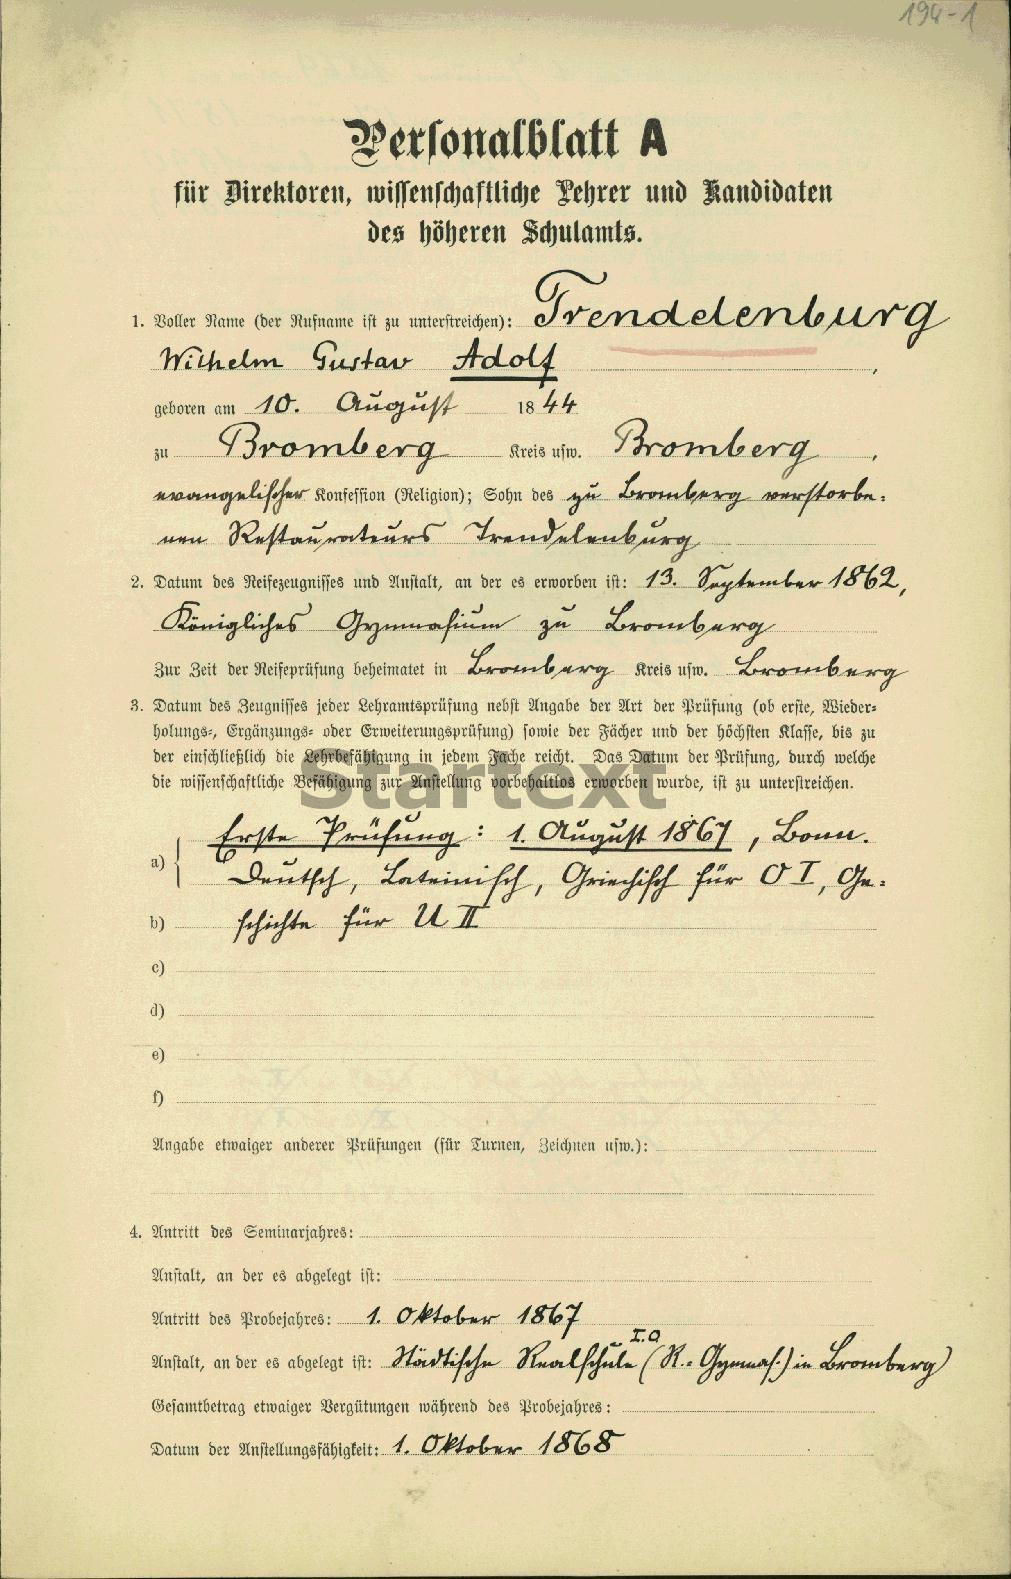 194-1
Personalblatt A
für Direktoren, wissenschaftliche Lehrer und Kandidaten
des höheren Schulamts.
1. Voller Name (der Rufname ist zu unterstreichen): Trendelenburg
Wilhelm Gustav Adolf,
geboren am 10. August 1844
zu Bromberg Kreis usw. Bromberg,
evangelischer Konfession (Religion); Sohn des zu Bromberg verstorbe-
nen Restaurateurs Trendelenburg
2. Datum des Reifezeugnisses und Anstalt, an der es erworben ist: 13. September 1862,
Königliches Gymnasium zu Bromberg
Zur Zeit der Reifeprüfung beheimatet in Bromberg Kreis usw. Bromberg
3. Datum des Zeugnisses jeder Lehramtsprüfung nebst Angabe der Art der Prüfung (ob erste, Wieder-
holungs-, Ergänzungs- oder Erweiterungsprüfung) sowie der Fächer und der höchsten Klasse, bis zu
der einschließlich die Lehrbefähigung in jedem Fache reicht. Das Datum der Prüfung, durch welche
die wissenschaftliche Befähigung zur Anstellung vorbehaltlos erworben wurde, ist zu unterstreichen.
Startext
Erste Prüfung: 1. August 1867, Bonn.
a) Deutsch, Lateinisch, Griechisch für O I, Ge-
b) schichte für U II
c)
d)
e)
f)
Angabe etwaiger anderer Prüfungen (für Turnen, Zeichnen usw.):
4. Antritt des Seminarjahres:
Anstalt, an der es abgelegt ist:
Antritt des Probejahres: 1. Oktober 1867
Anstalt, an der es abgelegt ist: Städtische Realschule I. O (R.-Gymnas.) in Bromberg
Gesamtbetrag etwaiger Vergütungen während des Probejahres:
Datum der Anstellungsfähigkeit: 1. Oktober 1868